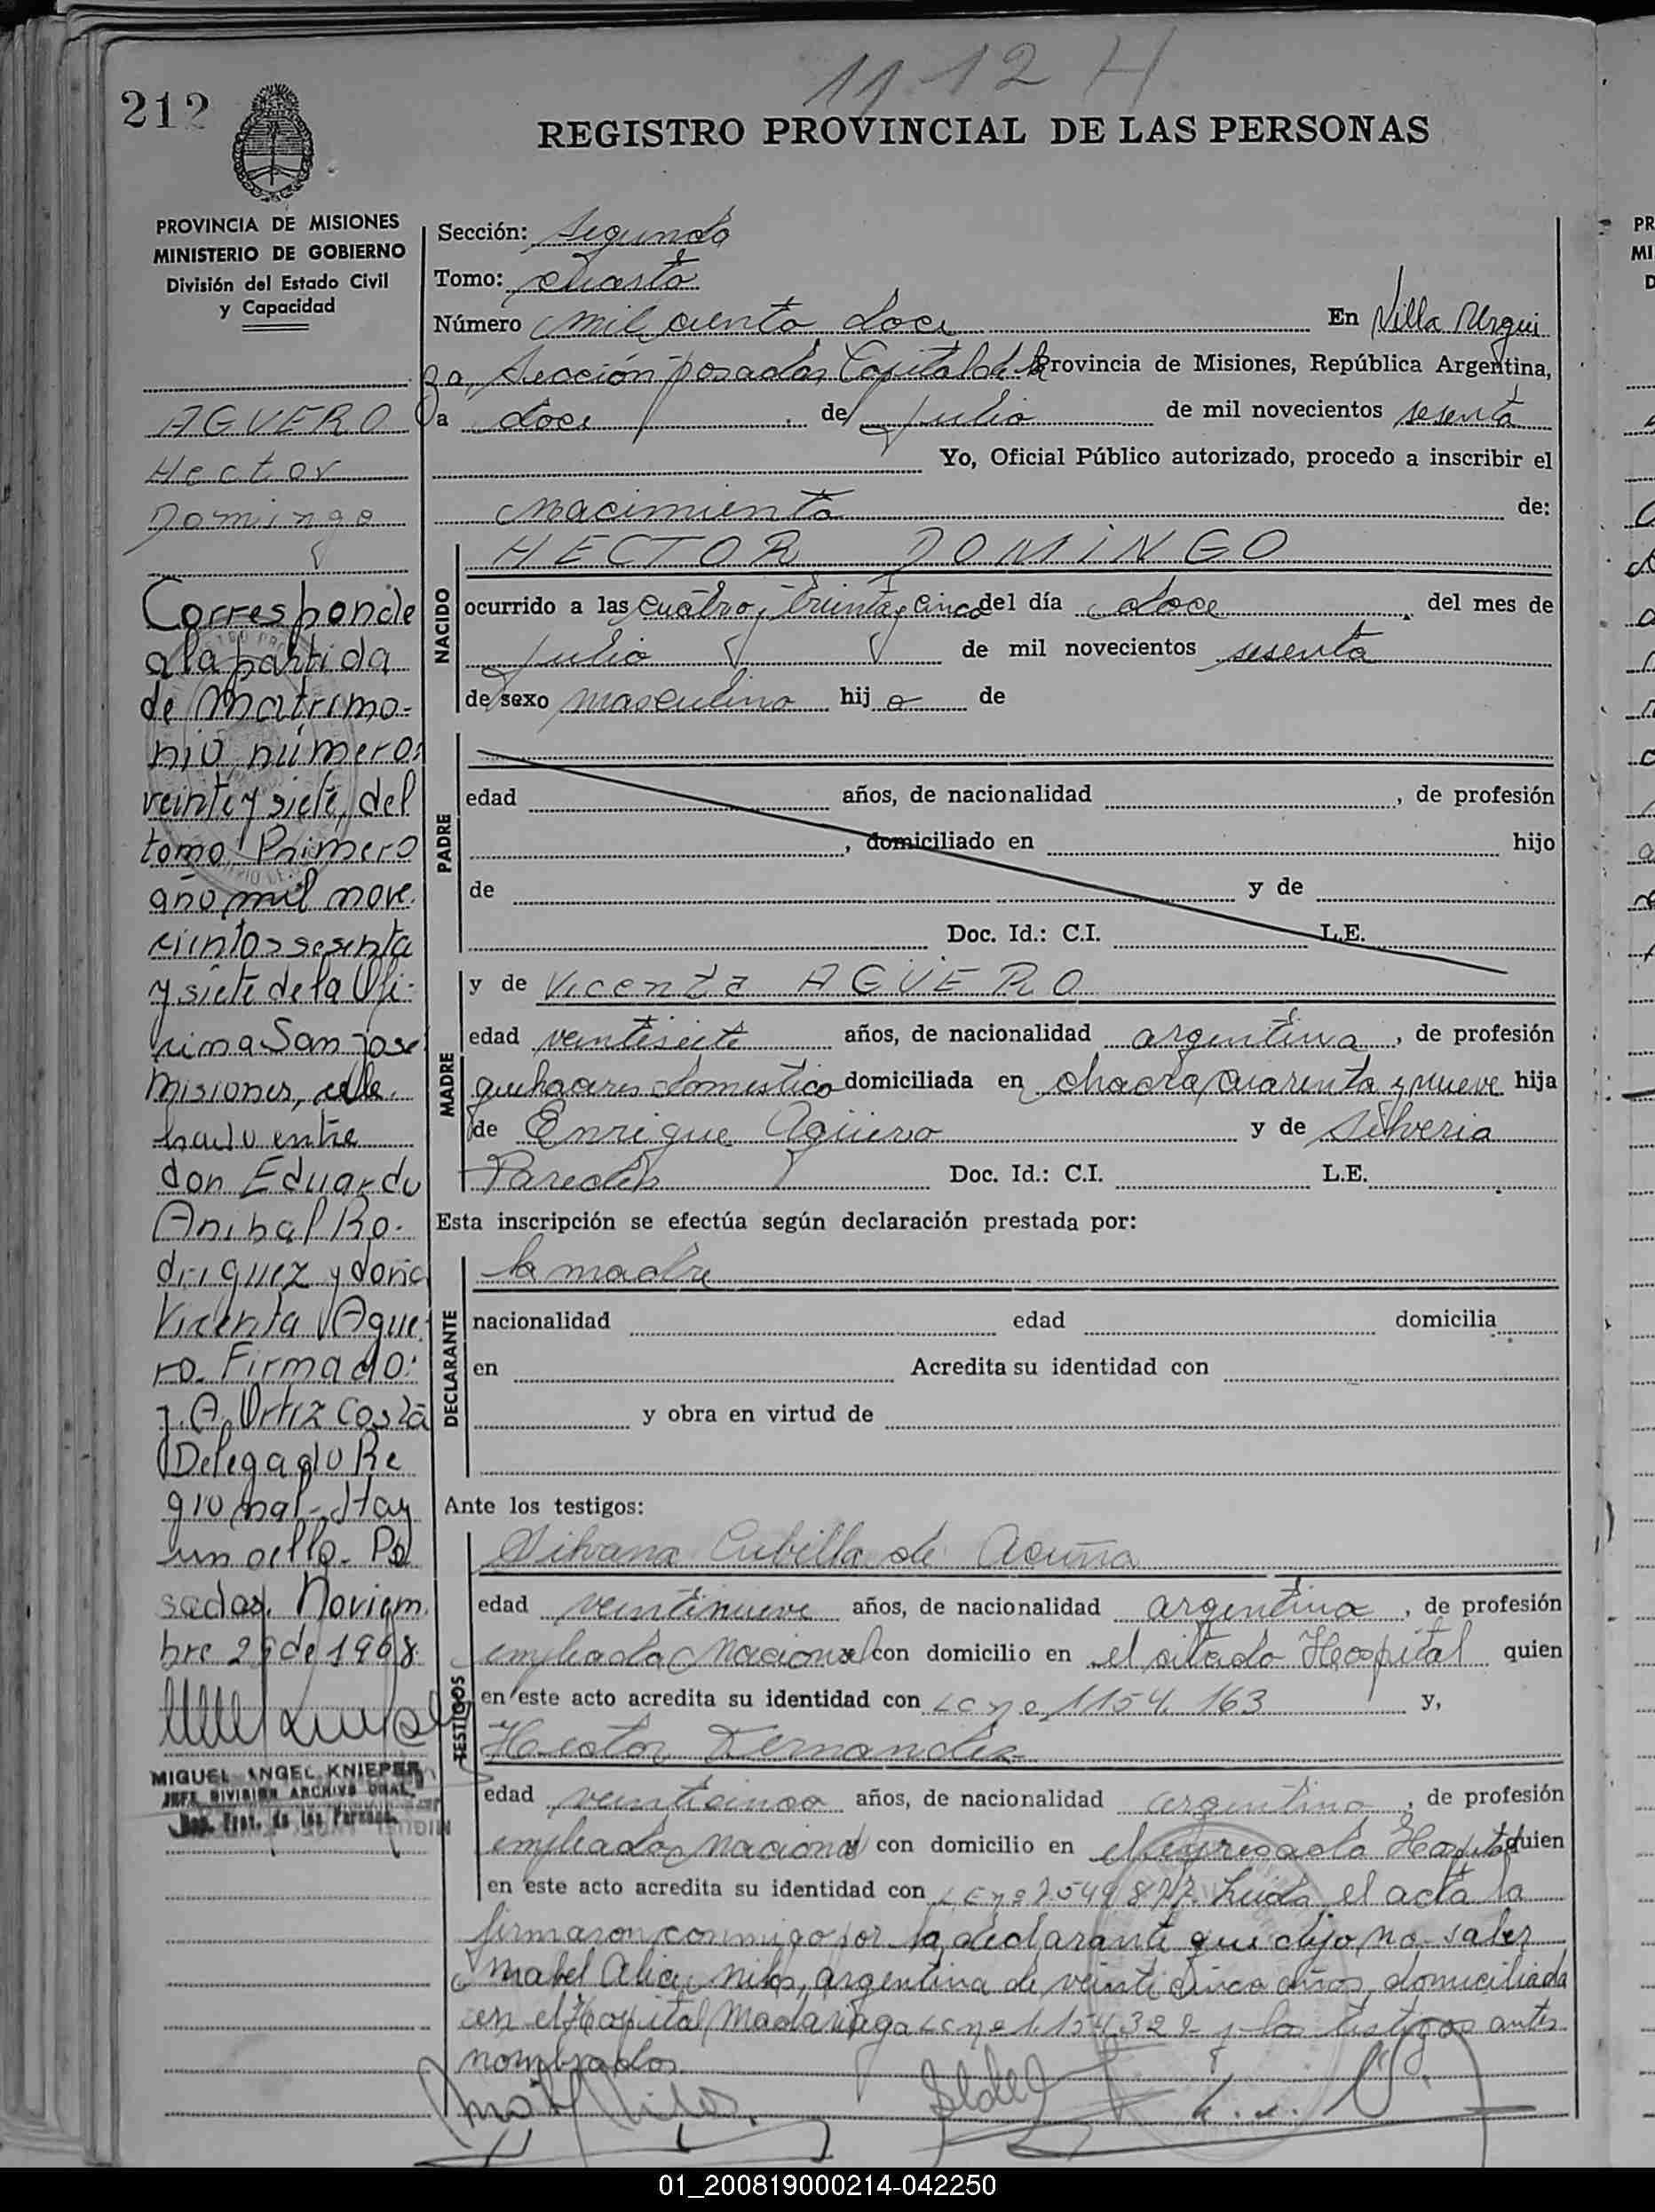 11 12 H
212
REGISTRO PROVINCIAL DE LAS PERSONAS
PROVINCIA DE MISIONES
MINISTERIO DE GOBIERNO
División del Estado Civil
y Capacidad
AGUERO
Hector
Domingo
Corresponde
a la partida
de Matrimo=
nio número
veinte y siete, del
tomo Primero
año mil nove
cientos sesenta
y siete de la Ofi-
cina San José
Misiones, cele
brado entre
don Eduardo
Anibal Ro-
driguez y doña
Vicenta Ague
ro. Firmado:
J. A. Ortiz Costa
Delegado Re
gional - Hay
un sello - Po
sadas, Noviem
bre 29 de 1968.
MIGUEL ANGEL KNIEPER
JEFE DIVISION ARCHIVO GRAL.
Reg. Prov. de las Personas
Sección: Segunda
Tomo: Cuarto
Número mil ciento doce En Villa Urqui
za, Sección Posadas Capital de la Provincia de Misiones, República Argentina,
a doce de julio de mil novecientos sesenta
Yo, Oficial Público autorizado, procedo a inscribir el
nacimiento de:
NACIDO
HECTOR DOMINGO
ocurrido a las cuatro y treinta y cinco del día doce, del mes de
julio de mil novecientos sesenta
de sexo masculino hij o de
PADRE
edad años, de nacionalidad , de profesión
, domiciliado en hijo
de y de
Doc. Id.: C.I. L.E.
MADRE
y de Vicenta AGÜERO
edad veintisiete años, de nacionalidad argentina, de profesión
quehaceres domestico domiciliada en chacra cuarenta y nueve hija
de Enrique Agüero y de Silveria
Paredes Doc. Id.: C.I. L.E.
Esta inscripción se efectúa según declaración prestada por:
DECLARANTE
la madre
nacionalidad edad domicilia
en Acredita su identidad con
y obra en virtud de
Ante los testigos:
TESTIGOS
Silvana Cubilla de Acuña
edad veintinueve años, de nacionalidad argentina, de profesión
empleada Nacional con domicilio en el citado Hospital quien
en este acto acredita su identidad con LC nº 1154.163 y,
Hector Fernandez
edad veinticinco años, de nacionalidad argentino, de profesión
empleado Nacional con domicilio en el expresado Hospital quien
en este acto acredita su identidad con LE nº 7.549.877. Leida el acta la
firmaron conmigo por la declarante que dijo no saber
Mabel Alicia Niles, argentina de veinticinco años, domiciliada
en el Hospital Madariaga LC nº 1.154.329 y los testigos antes
nombrados.
01_200819000214-042250